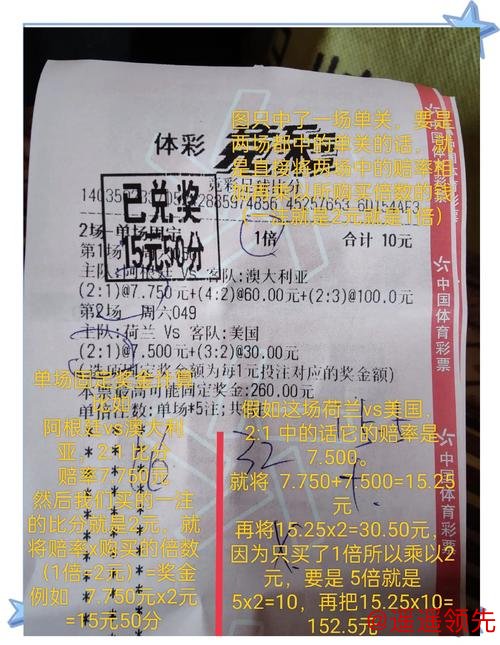 图只中了一场单关，要是
两场都中的单关的话，就
是直接将两场中的赔率相
（一注就是2元就是1倍）
体彩
竞彩
已兑奖
15元50分
2场-单场固定
1倍
合计 10元
第1场
主队:阿根廷 Vs 客队:澳大利亚
(2:1)@7.750元+(4:2)@60.00元+(2:3)@100.0元
第2场 周六049
主队:荷兰 Vs 客队:美国
(2:1)@7.500元+(3:2)@30.00元
(选项固定奖金额为每1元投注对应的奖金额)
本票最高可能固定奖金:260.00元
单场固定奖金计算
比如
阿根廷vs澳大利
亚，2:1 比分
赔率7.750元
然后我们买的一注
的比分就是2元，就
将赔率x购买的倍数
（1倍=2元）=奖金
例如 7.750元x2元
=15元50分
假如这场荷兰vs美国，
2:1 中的话它的赔率是
7.500。
就将 7.750+7.500=15.25
元
再将15.25x2=30.50元，
因为只买了1倍所以乘以2
元，要是 5倍就是
5x2=10，再把15.25x10=
152.5元
32
中国体育彩票
中国体育彩票
@遥遥领先